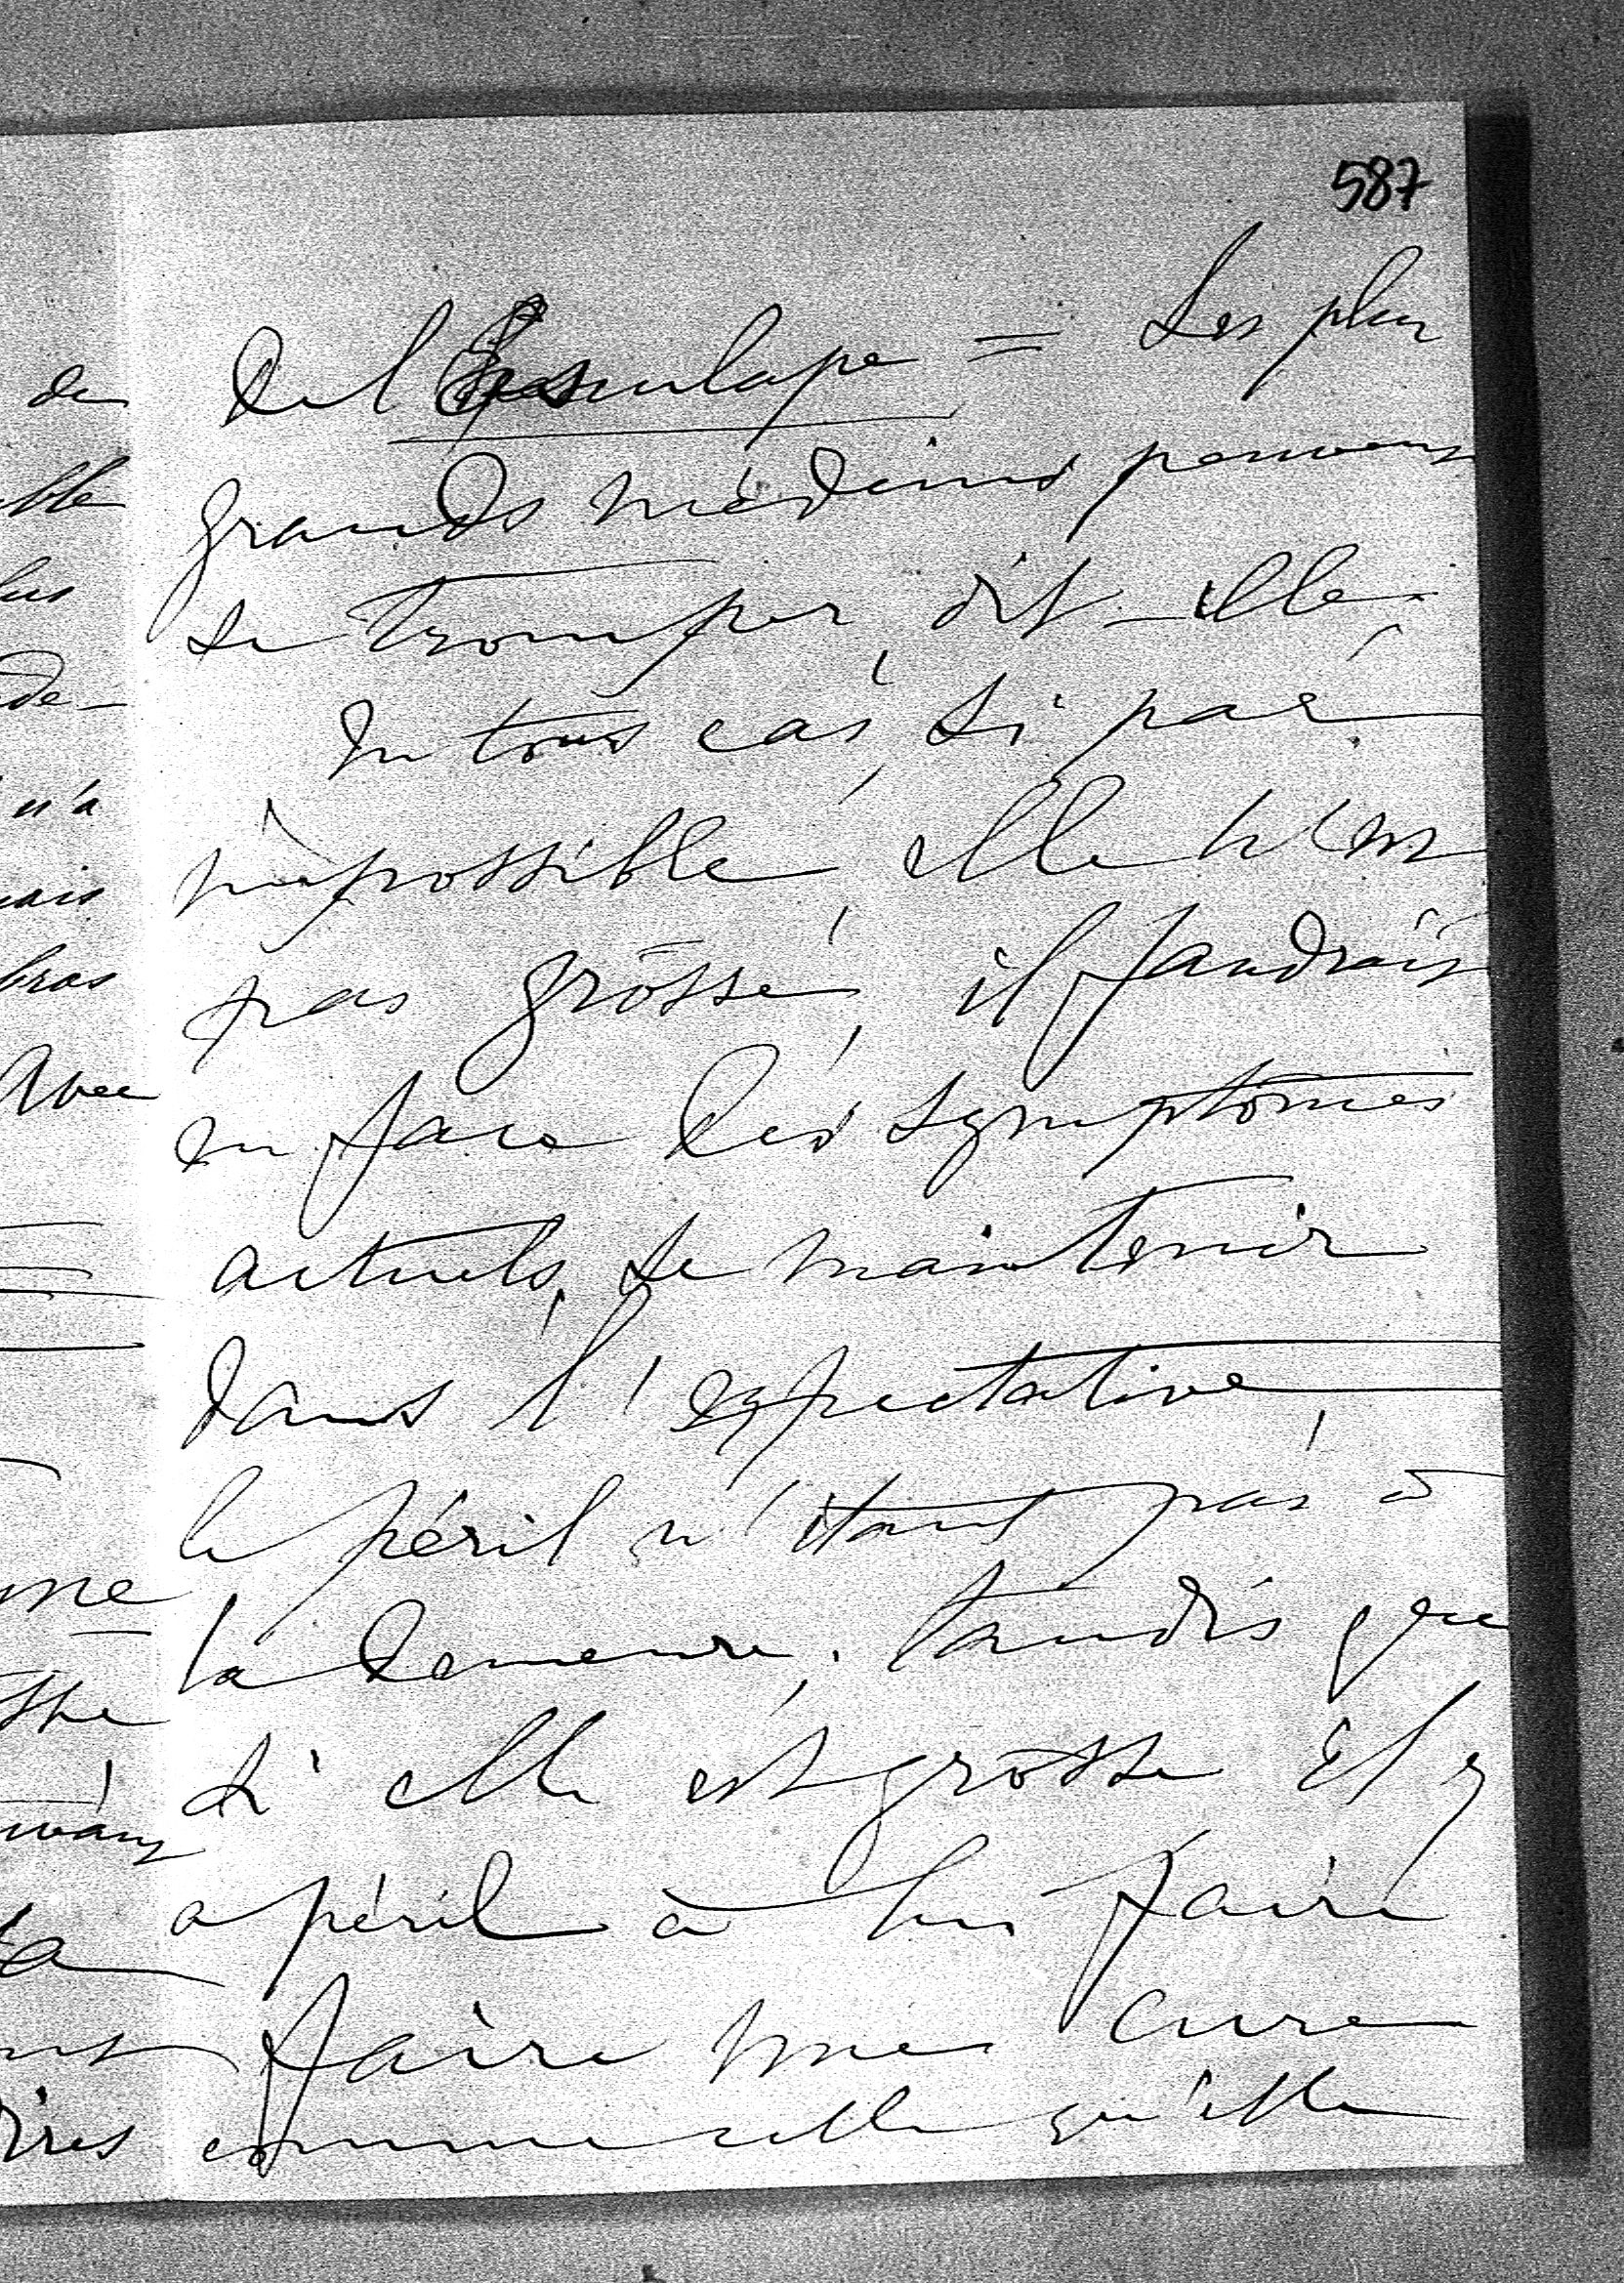 587
de l'Esculape = Les plus
grands médecins peuvent
se tromper, dit-elle.
En tous cas, si par
impossible, elle n'est
pas grosse, il faudrait
en face des symptômes
actuels, se maintenir
dans l'expectative,
le péril n'étant pas à
la demeure. tandis que
si elle est grosse il y
a péril à lui faire
faire une cure
comme celle qu'elle
de
n'a
mais
bras
Avec
me